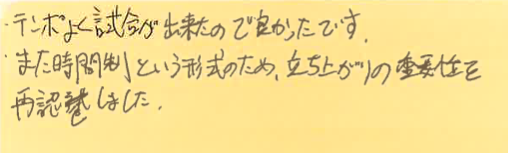 ・テンポよく試合が出来たので良かったです。
・また時間制という形式のため、立ち上がりの重要性を
再認識しました。